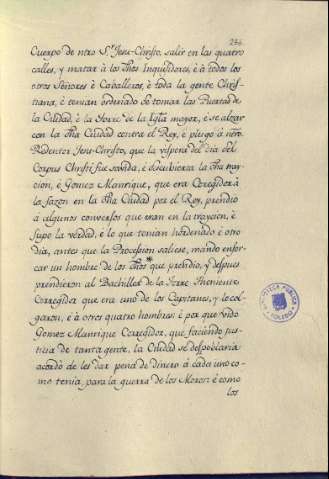 236
Cuerpo de ntro Sr. Jesu-Christo, salir en las quatro
calles, y matar à los dhos Inquisidores, è à todos los
otros Señores è Caballeros, è toda la gente Chris-
tiana, è tenian ordenado de tomar las Puertas de
la Ciudad, è la Torre de la Iglia mayor, è se alzar
con la dha Ciudad contra el Rey, è plugo à nrõ
Redentor Jesu-Christo, que la vispera del dia del
Corpus Christi fue savida, è descubierta la dha tray-
cion, è Gomez Manrique, que era Corregidor à
la sazon en la dha Ciudad por el Rey, prendio
à algunos conversos que eran en la traycion, è
supo la verdad, è lo que tenian hordenado è otro
dia, antes que la Procesion saliese, mando enfor-
car un hombre de los dhos que prendio, y despues
prendieron al Bachiller de la Torre Theniente
Corregidor que era uno de los Capitanes, y lo col-
garon, è à otros quatro hombres è por que vido
Gomez Manrique Corregidor, que faciendo jus-
ticia de tanta gente, la Ciudad se despoblaria
acordo de les dar pena de dinero à cada uno co-
mo tenia, para la guerra de los Moros: è como
los
BIBLIOTECA PUBLICA
TOLEDO